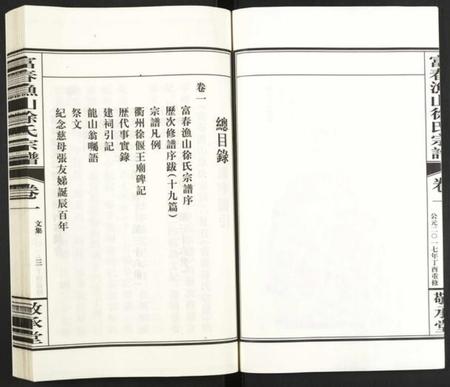 富春漁山徐氏宗譜
卷一
公元二〇一七年丁酉重修
敬承堂
總目錄
卷一
富春漁山徐氏宗譜序
歷次修譜序跋(十九篇)
宗譜凡例
衢州徐偃王廟碑記
歷代事實錄
建祠引記
龍山翁囑語
祭文
紀念慈母張友娣誕辰百年
富春漁山徐氏宗譜
卷一
文集
三
敬承堂